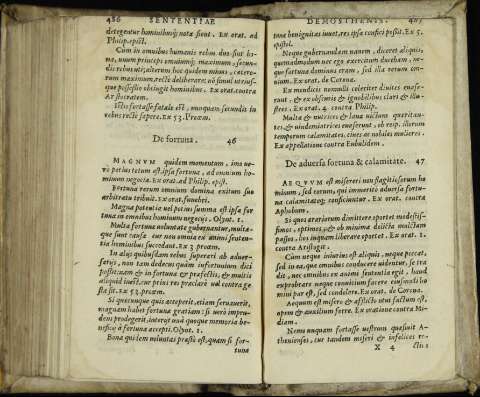 486 SENTENTIAE
detegetur hominibusq́; nota fient. Ex orat. ad
Philip. epist.
Cum in omnibus humanis rebus duo sint bo-
na, unum princeps omniumq́; maximum, secun-
dis rebus uti; alterum hoc quidem minus, cætero-
rum maximum rectè deliberare: nō simul utrius-
que possessio obtingit hominibus. Ex orat. contra
Aristocratem.
Istis fortasse fatale est, nunquam secundis in
rebus rectè sapere. Ex 53. Proœm.
De fortuna. 46
MAGNVM quidem momentum, imo ue-
rò potius totum est ipsa fortuna, ad omnium ho-
minum negocia. Ex orat. ad Philip. epist.
Fortuna rerum omnium domina exitum suo
arbitratu tribuit. Ex orat. funebri.
Magna potentia uel potius summa est ipsa for-
tuna in omnibus hominum negocijs. Olynt. 1.
Multa fortuna uoluntate gubernantur, multæ-
que sunt causæ cur non omnia ex animi senten-
tia hominibus succedant. Ex 3 proœm.
In alijs quibusdam rebus superari ab aduer-
sarijs, non tam dedecus quàm infortunium dici
possit: nam & in fortuna & præfectis, & multis
aliquid inest, cur prius res præclarè uel contra ge-
stæ sit. Ex 53. proœm.
Si quæcunque quis acceperit, etiam seruauerit,
magnam habet fortunæ gratiam: si uerò impru-
dens prodegerit, interijt unà quoque memoria be-
neficij à fortuna accepti. Olynt. 1.
Bona quidem uoluntas præstò est, quam si for-
tuna
DEMOSTHENIS. 487
tunæ benignitas iuuet, res ipsa confici possit. Ex 5.
epistol.
Neque gubernandam nauem, diceret aliquis,
quemadmodum nec ego exercitum ducebam, ne-
que fortunæ dominus eram, sed illa rerum om-
nium. Ex orat. de Corona.
Ex mendicis nonnulli celeriter diuites euase-
runt, & ex obscuris & ignobilibus clari & illu-
stres. Ex orat. 4. contra Philip.
Multæ & nutrices & lana uictum quæritan-
tes, & uindemiatrices euaserunt, ob reip. illorum
temporum calamitates, ciues ac nobiles mulieres.
Ex appellatione contra Eubulidem.
De aduersa fortuna & calamitate. 47
AEQVVM est misereri non flagitiosorum ho
minum, sed eorum, qui immeritò aduersæ fortu-
næ calamitateq́; conficiuntur. Ex orat. contra
Aphobum.
Si quos oratorum dimittere oportet modestis-
simos, optimos, & ob minima delicta mulctam
passos, hos inquam liberare oportet. Ex orat. 1.
contra Aristogit.
Cum neque iniurius est aliquis, neque peccat,
sed in ea, quæ omnibus conducere uidentur, se tra
dit, nec omnibus ex animi sententia egit, haud
exprobrare neque conuitium facere eiusmodi ho
mini par est, sed condolere. Ex orat. de Corona.
Aequum est misero & afflicto uti factum est,
opem & auxilium ferre. Ex oratione contra Mi-
diam.
Nemo nunquam fortasse uestrum quæsiuit A-
thenienses, cur tandem miseri & infelices re-
X 4 ctiùs